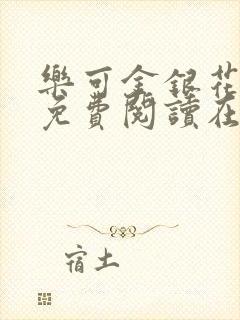 樂可金銀花
免費閱讀在
宿土